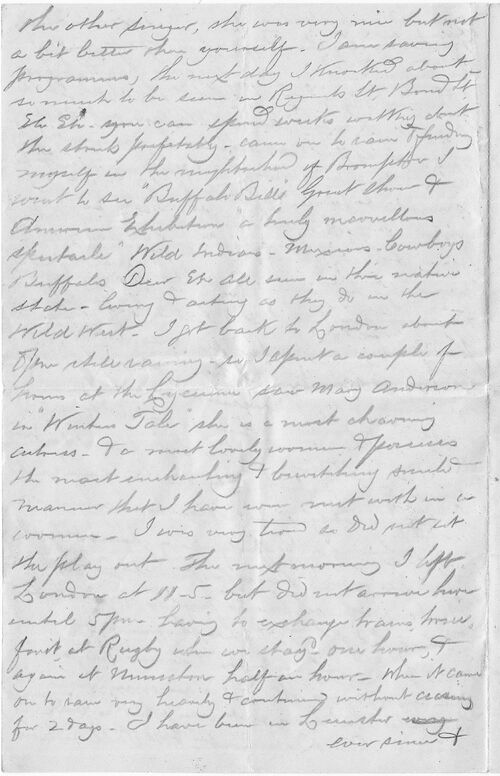 the other singer, she was very nice but not
a bit better than yourself. I am saving
programmes, the next day I knocked about
so much to be seen in Regents St. Bond St
Etc Etc. you can spend weeks walking about
the streets profitably - came on to rain & finding
myself in the neighborhood of Brompton I
went to see "Buffalo Bills" Great Show &
American Exhibition "a truly marvellous
spectacle" Wild Indians - Mexicans - Cowboys
Buffalo Deer Etc all seen in their native
state - living & acting as they do in the
Wild West - I got back to London about
still raining - so I spent a couple of
hours at the Lyceum saw Mary Anderson
in "Winters Tale" she is a most charming
actress - & a most lovely women & possesses
the most enchanting & bewitching smile &
manner that I have ever met with in a
woman - I was very tired so did not sit
the play out. The next morning I left
London at 11-5 - but did not arrive here
until 5pm having to exchange trains twice
first at Rugby when we stayed one hour, &
again at half an hour - when it came
on to rain very heavily & continued without ceasing
for 2 days - I have been in Leicester
ever since &